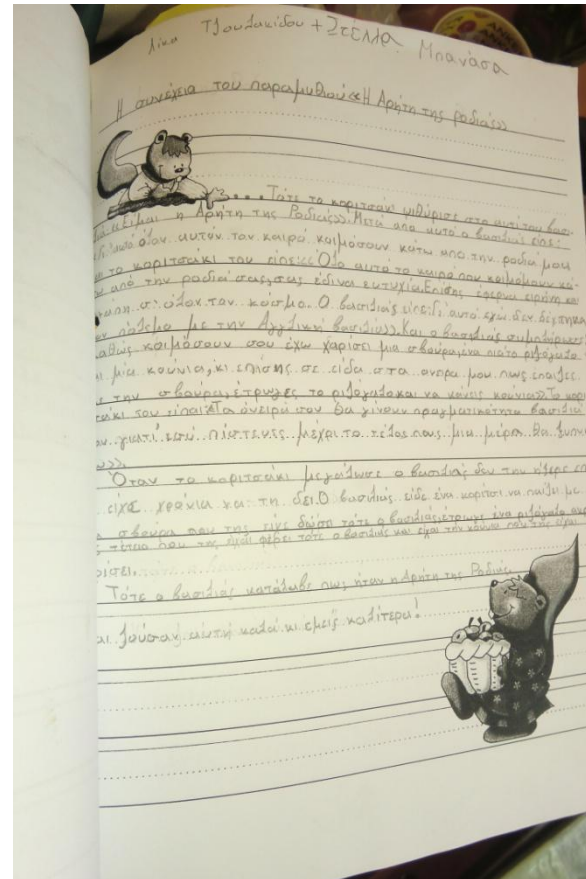 Λίκα Τζουλακίδου + Στέλλα Μπανάσα
Η συνέχεια του παραμυθιού «Η Αρήτη της ροδιάς»
....Τότε το κοριτσάκι ψιθύρισε στο αυτί του βασι-
«Είμαι η Αρήτη της Ροδιάς». Μετά από αυτό ο βασιλιάς είπε:
όλον αυτόν τον καιρό κοιμόσουν κάτω απο την ροδιά μου
το κοριτσάκι του είπε: «Όλο αυτό το καιρό που κοιμόμουν κά-
από την ροδιά σας, σας έδινα ευτυχία. Επίσης έφερνα ειρήνη και
σ' όλον τον κόσμο. Ο βασιλιάς είπε: Γι' αυτό εγώ δεν
πόλεμο με την Αγγλική βασιλ Και ο βασιλιάς συμπλήρωσε
καθώς κοιμόσουν σου έχω χαρίσει μια σβούρα, ένα πιάτο ριζόγαλο
μία κούνια, κι επίσης σε είδα στα ονειρα μου πως έπαιζες
με την σβούρα, έτρωγες το ριζόγαλο και να κάνεις κούνια». Το κορι
τσάκι του είπαι: «Τα όνειρά σου θα γίνουν πραγματικότητα βασιλιά
γιατί εσύ πίστευες μέχρι το τέλος πως μια μέρα θα ξυπν
Όταν το κοριτσάκι μεγάλωσε ο βασιλιάς δεν την ήξερε
είχε χρόνια να τη δει. Ο βασιλιάς είδε ένα κορίτσι να παίζει με
σβούρα που της είχε δώσει τότε ο βασιλιάς, έτρωγε ένα ριζόγαλο
που της είχαι φέρει τότε ο βασιλιάς και είχαι την κούνια που της είχαι
ρίσει.
Τότε ο βασιλιάς κατάλαβε πως ήταν η Αρήτη της Ροδιάς.
ζούσαν αυτοί καλά κι εμείς καλίτερα!